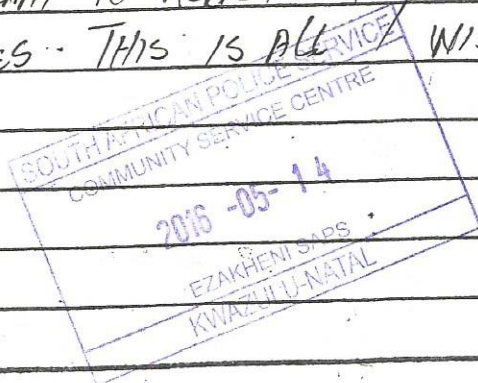 TO
S. THIS IS ALL I WI
SOUTH AFRICAN POLICE SERVICE
COMMUNITY SERVICE CENTRE
2016 -05- 14
EZAKHENI SAPS
KWAZULU-NATAL